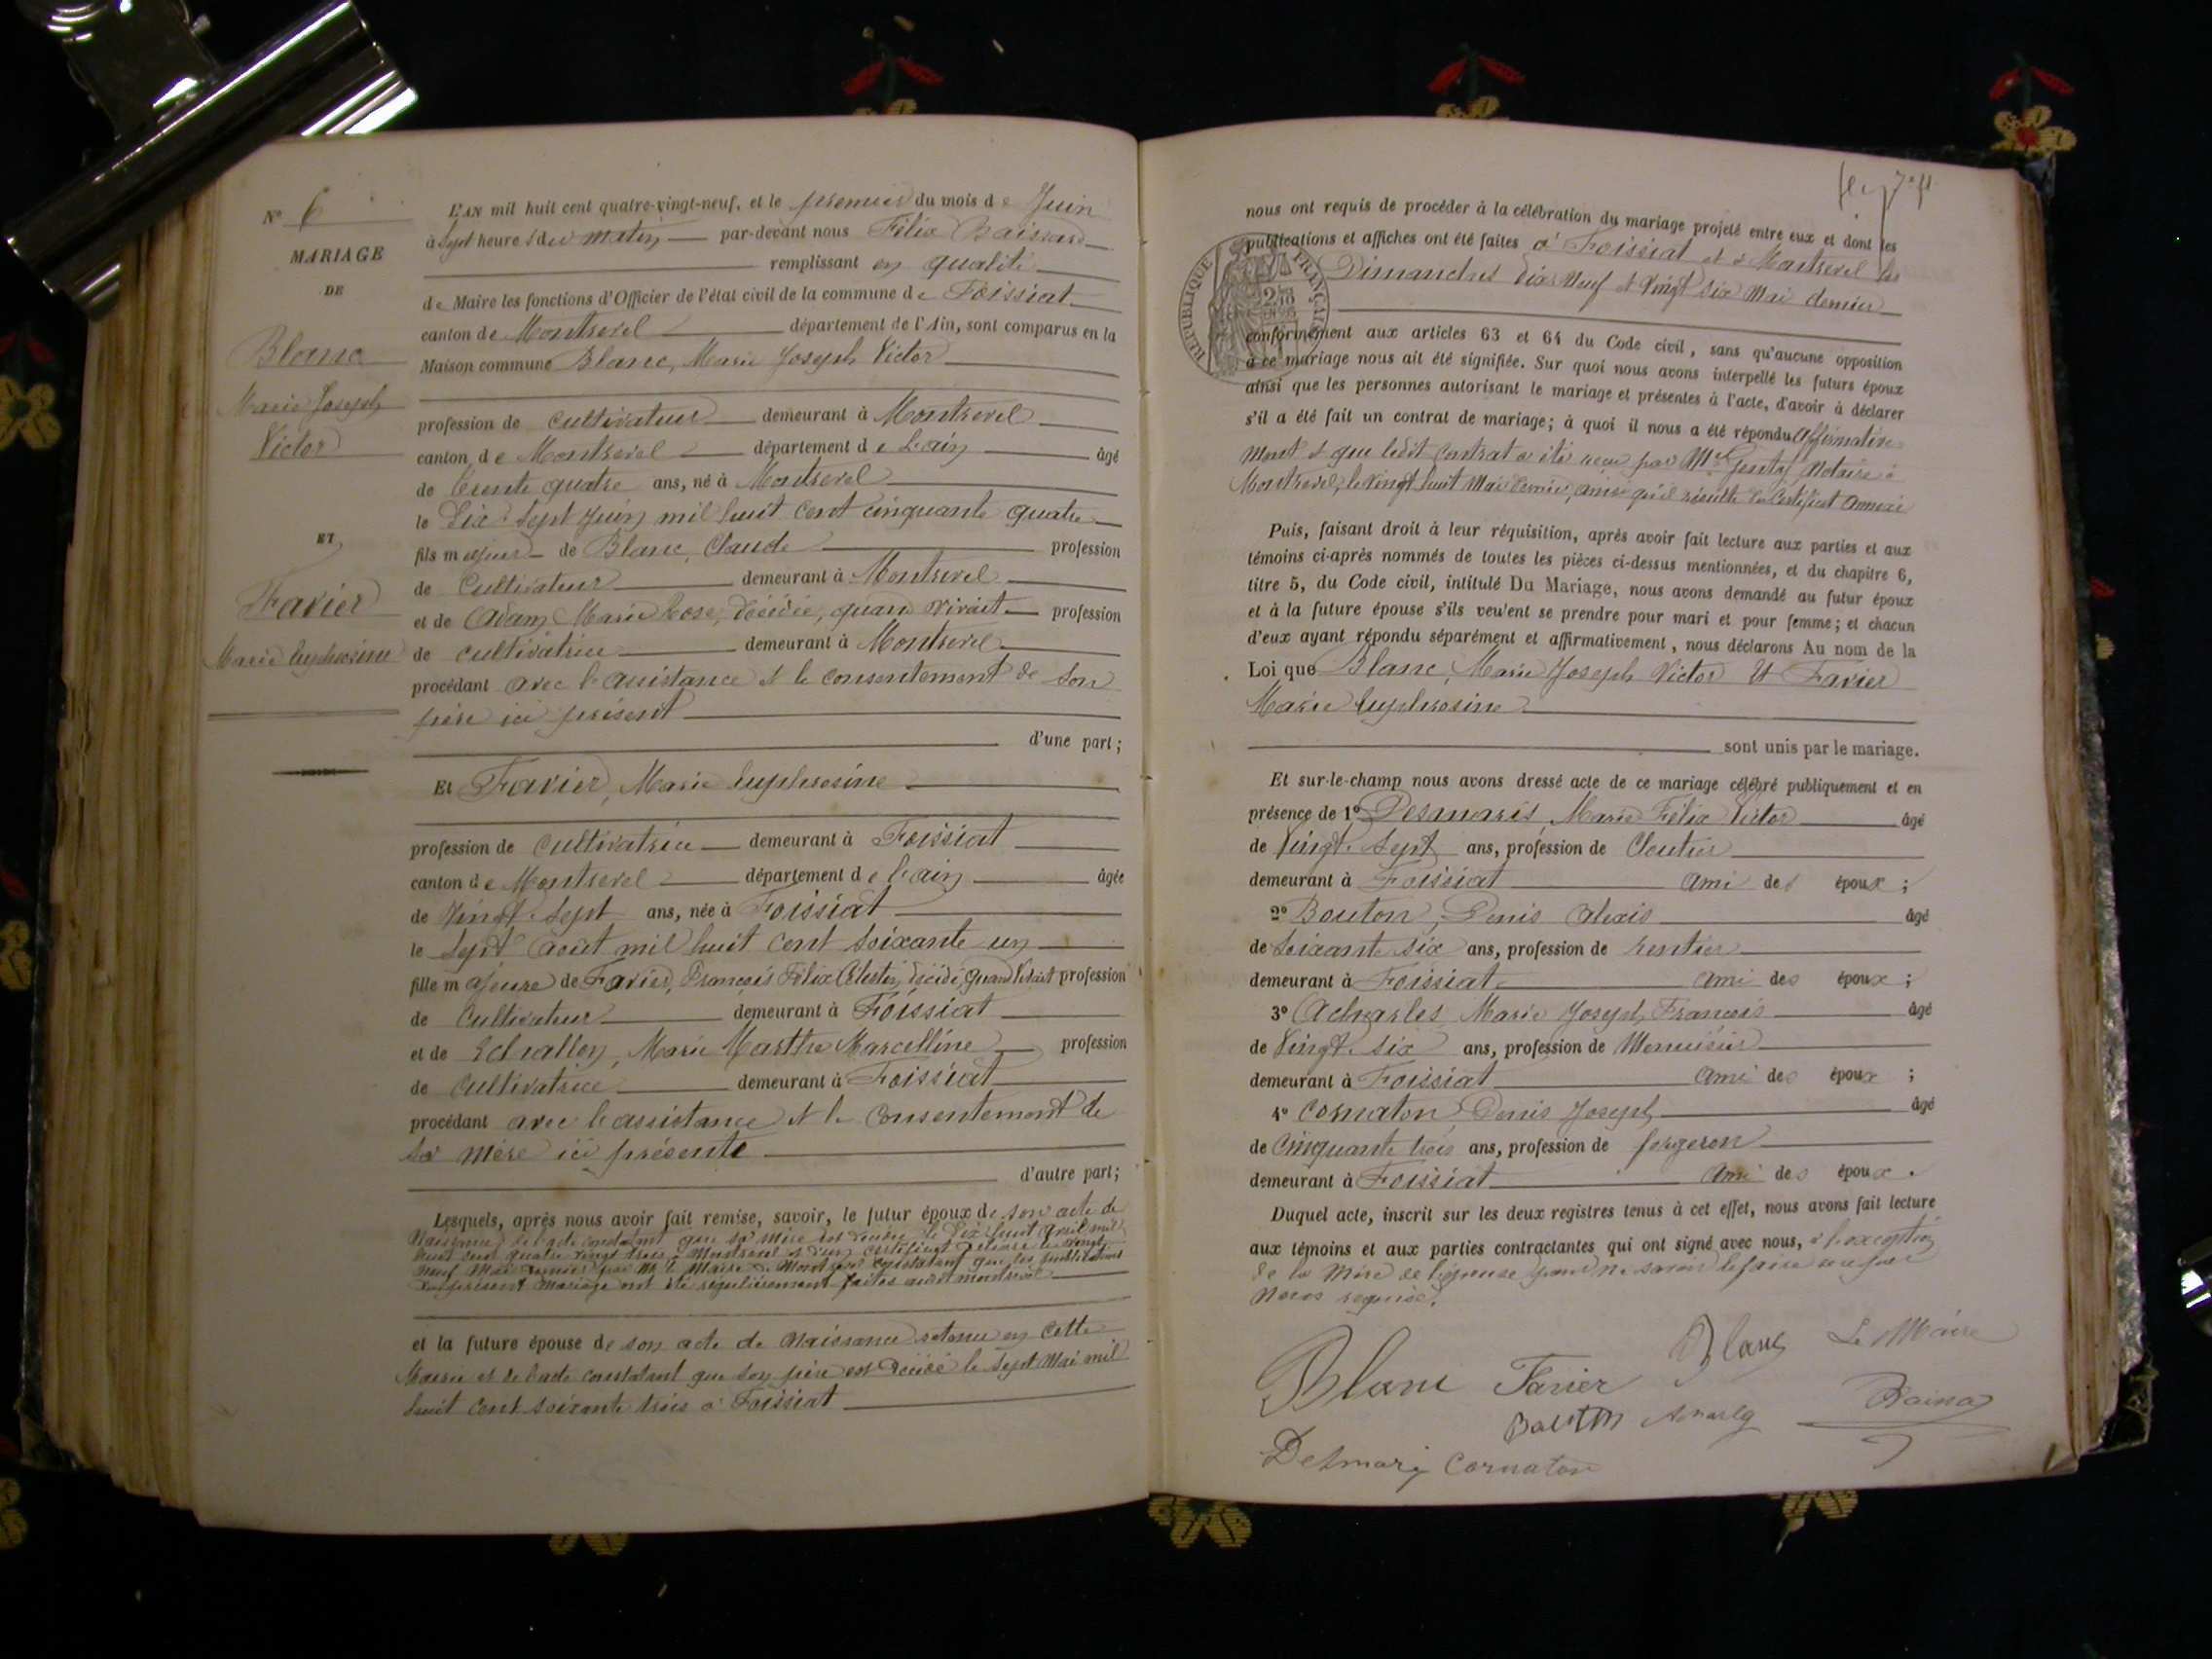 N° 6
MARIAGE
DE
Blanc
Marie Joseph
Victor
ET
Favier
Marie Euphrosine
L'AN mil huit cent quatre-vingt-neuf, et le premier du mois de Juin
à Sept heures du matin par-devant nous Félix
remplissant en qualité
de Maire les fonctions d'Officier de l'état civil de la commune de Foissiat
canton de Montrevel département de l'Ain, sont comparus en la
Maison commune Blanc, Marie Joseph Victor
profession de cultivateur demeurant à Montrevel
canton de Montrevel département de l'ain âgé
de trente quatre ans, né à Montrevel
le Dix Sept Juin mil huit cent cinquante quatre
fils majeur de Blanc, Claude profession
de Cultivateur demeurant à Montrevel
et de Adam, Marie Rose, décédée, quand vivait profession
de cultivatrice demeurant à Montrevel
procédant avec l'assistance et le consentement de son
père ici présent
d'une part;
Et Favier, Marie Euphrosine
profession de cultivatrice demeurant à Foissiat
canton de Montrevel département de l'ain âgée
de Vingt-Sept ans, née à Foissiat
le Sept août mil huit cent soixante un
fille majeure de Favier, François Félix Célestin, décédé, quand vivait profession
de Cultivateur demeurant à Foissiat
et de Echallon, Marie Marthe Marcelline profession
de Cultivatrice demeurant à Foissiat
procédant avec l'assistance et le consentement de
sa mère ici présente
d'autre part;
Lesquels, après nous avoir fait remise, savoir, le futur époux de son acte de
naissance, de l'acte constatant que sa mère est décédée le Dix huit avril mil
huit cent quatre vingt trois à Montrevel et d'un certificat délivré le vingt
neuf Mai dernier par Mr le Maire de Montrevel constatant que les publications
du présent mariage ont été régulièrement faites audit montrevel
et la future épouse de son acte de naissance retenu en cette
Mairie et de l'acte constatant que son père est décédé le sept Mai mil
huit cent soixante trois à Foissiat
nous ont requis de procéder à la célébration du mariage projeté entre eux et dont les
publications et affiches ont été faites à Foissiat et à Montrevel les
Dimanches Dix-Neuf et Vingt six Mai dernier
RÉPUBLIQUE FRANÇAISE
conformément aux articles 63 et 64 du Code civil, sans qu'aucune opposition
à ce mariage nous ait été signifiée. Sur quoi nous avons interpellé les futurs époux
ainsi que les personnes autorisant le mariage et présentes à l'acte, d'avoir à déclarer
s'il a été fait un contrat de mariage; à quoi il nous a été répondu affirmative
ment et que ledit contrat a été reçu par Me notaire à
Montrevel, le vingt huit Mai dernier, ainsi qu'il résulte du certificat annexé
Puis, faisant droit à leur réquisition, après avoir fait lecture aux parties et aux
témoins ci-après nommés de toutes les pièces ci-dessus mentionnées, et du chapitre 6,
titre 5, du Code civil, intitulé Du Mariage, nous avons demandé au futur époux
et à la future épouse s'ils veulent se prendre pour mari et pour femme; et chacun
d'eux ayant répondu séparément et affirmativement, nous déclarons Au nom de la
Loi que Blanc, Marie Joseph Victor Et Favier
Marie Euphrosine
sont unis par le mariage.
Et sur-le-champ nous avons dressé acte de ce mariage célébré publiquement et en
présence de 1° Desmaris, Marie Félix Victor âgé
de Vingt-Sept ans, profession de Cloutier
demeurant à Foissiat ami des époux;
2° Bouton, Denis Alexis âgé
de soixante six ans, profession de rentier
demeurant à Foissiat ami des époux;
3° Acharles Marie Joseph François âgé
de Vingt-six ans, profession de Menuisier
demeurant à Foissiat ami des époux;
4° Cornaton, Denis Joseph âgé
de Cinquante trois ans, profession de forgeron
demeurant à Foissiat ami des époux.
Duquel acte, inscrit sur les deux registres tenus à cet effet, nous avons fait lecture
aux témoins et aux parties contractantes qui ont signé avec nous, à l'exception
de la mère de l'épouse pour ne savoir le faire de ce par
nous requise.
Blanc Favier Blanc Le Maire
Bouton
Desmaris Cornaton